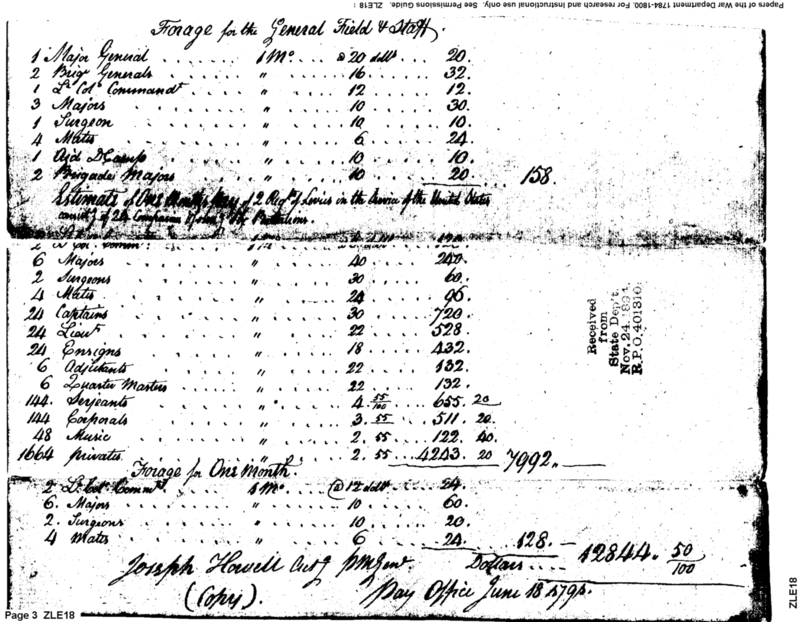 Papers of the War Department 1784-1800. For research and instructional use only. See Permissions Guide. ZLE18 :
Forage for the General Field & Staff.
1 Major General 1 Mo @ 20 dolls 20.
2 Brigr Generals " 16 32
1 Lt Colo Commandt " 12 12.
3 Majors " 10 30
1 Surgeon " 10 10.
4 Mates " 6 24
1 Aid DCamp " 10 10.
2 Brigade Majors " 10 20 158.
Estimate of One Months Pay of 2 Regts of Levies in the Service of the United States
consistg of 24 Companies
2
6 Majors " 40 240.
2 Surgeons " 30 60.
4 Mates " 24 96
24 Captains " 30 720
24 Lieuts " 22 528
24 Ensigns " 18 432
6 Adjutants " 22 132
6 Quarter Masters " 22 132.
144. Serjeants " 4 55/100 655. 20
144 Corporals " 3. 55 511 20.
48 Music " 2. 55 122. 40.
1664 privates " 2. 55 4243. 20 7992.
Forage for One Month.
2 Lt Colo Commts 1 Mo @ 12 dolls 24.
6. Majors " 10 60.
2. Surgeons " 10 20
4 Mates " 6 24. 128. 12844. 50/100
Joseph Howell Actg PMGenl. Dollars
(Copy). Pay Office June 18 1791.
Received
from
State Dep't.
Nov. 24, 1894.
R.P.O. 401310.
Page 3 ZLE18
ZLE18